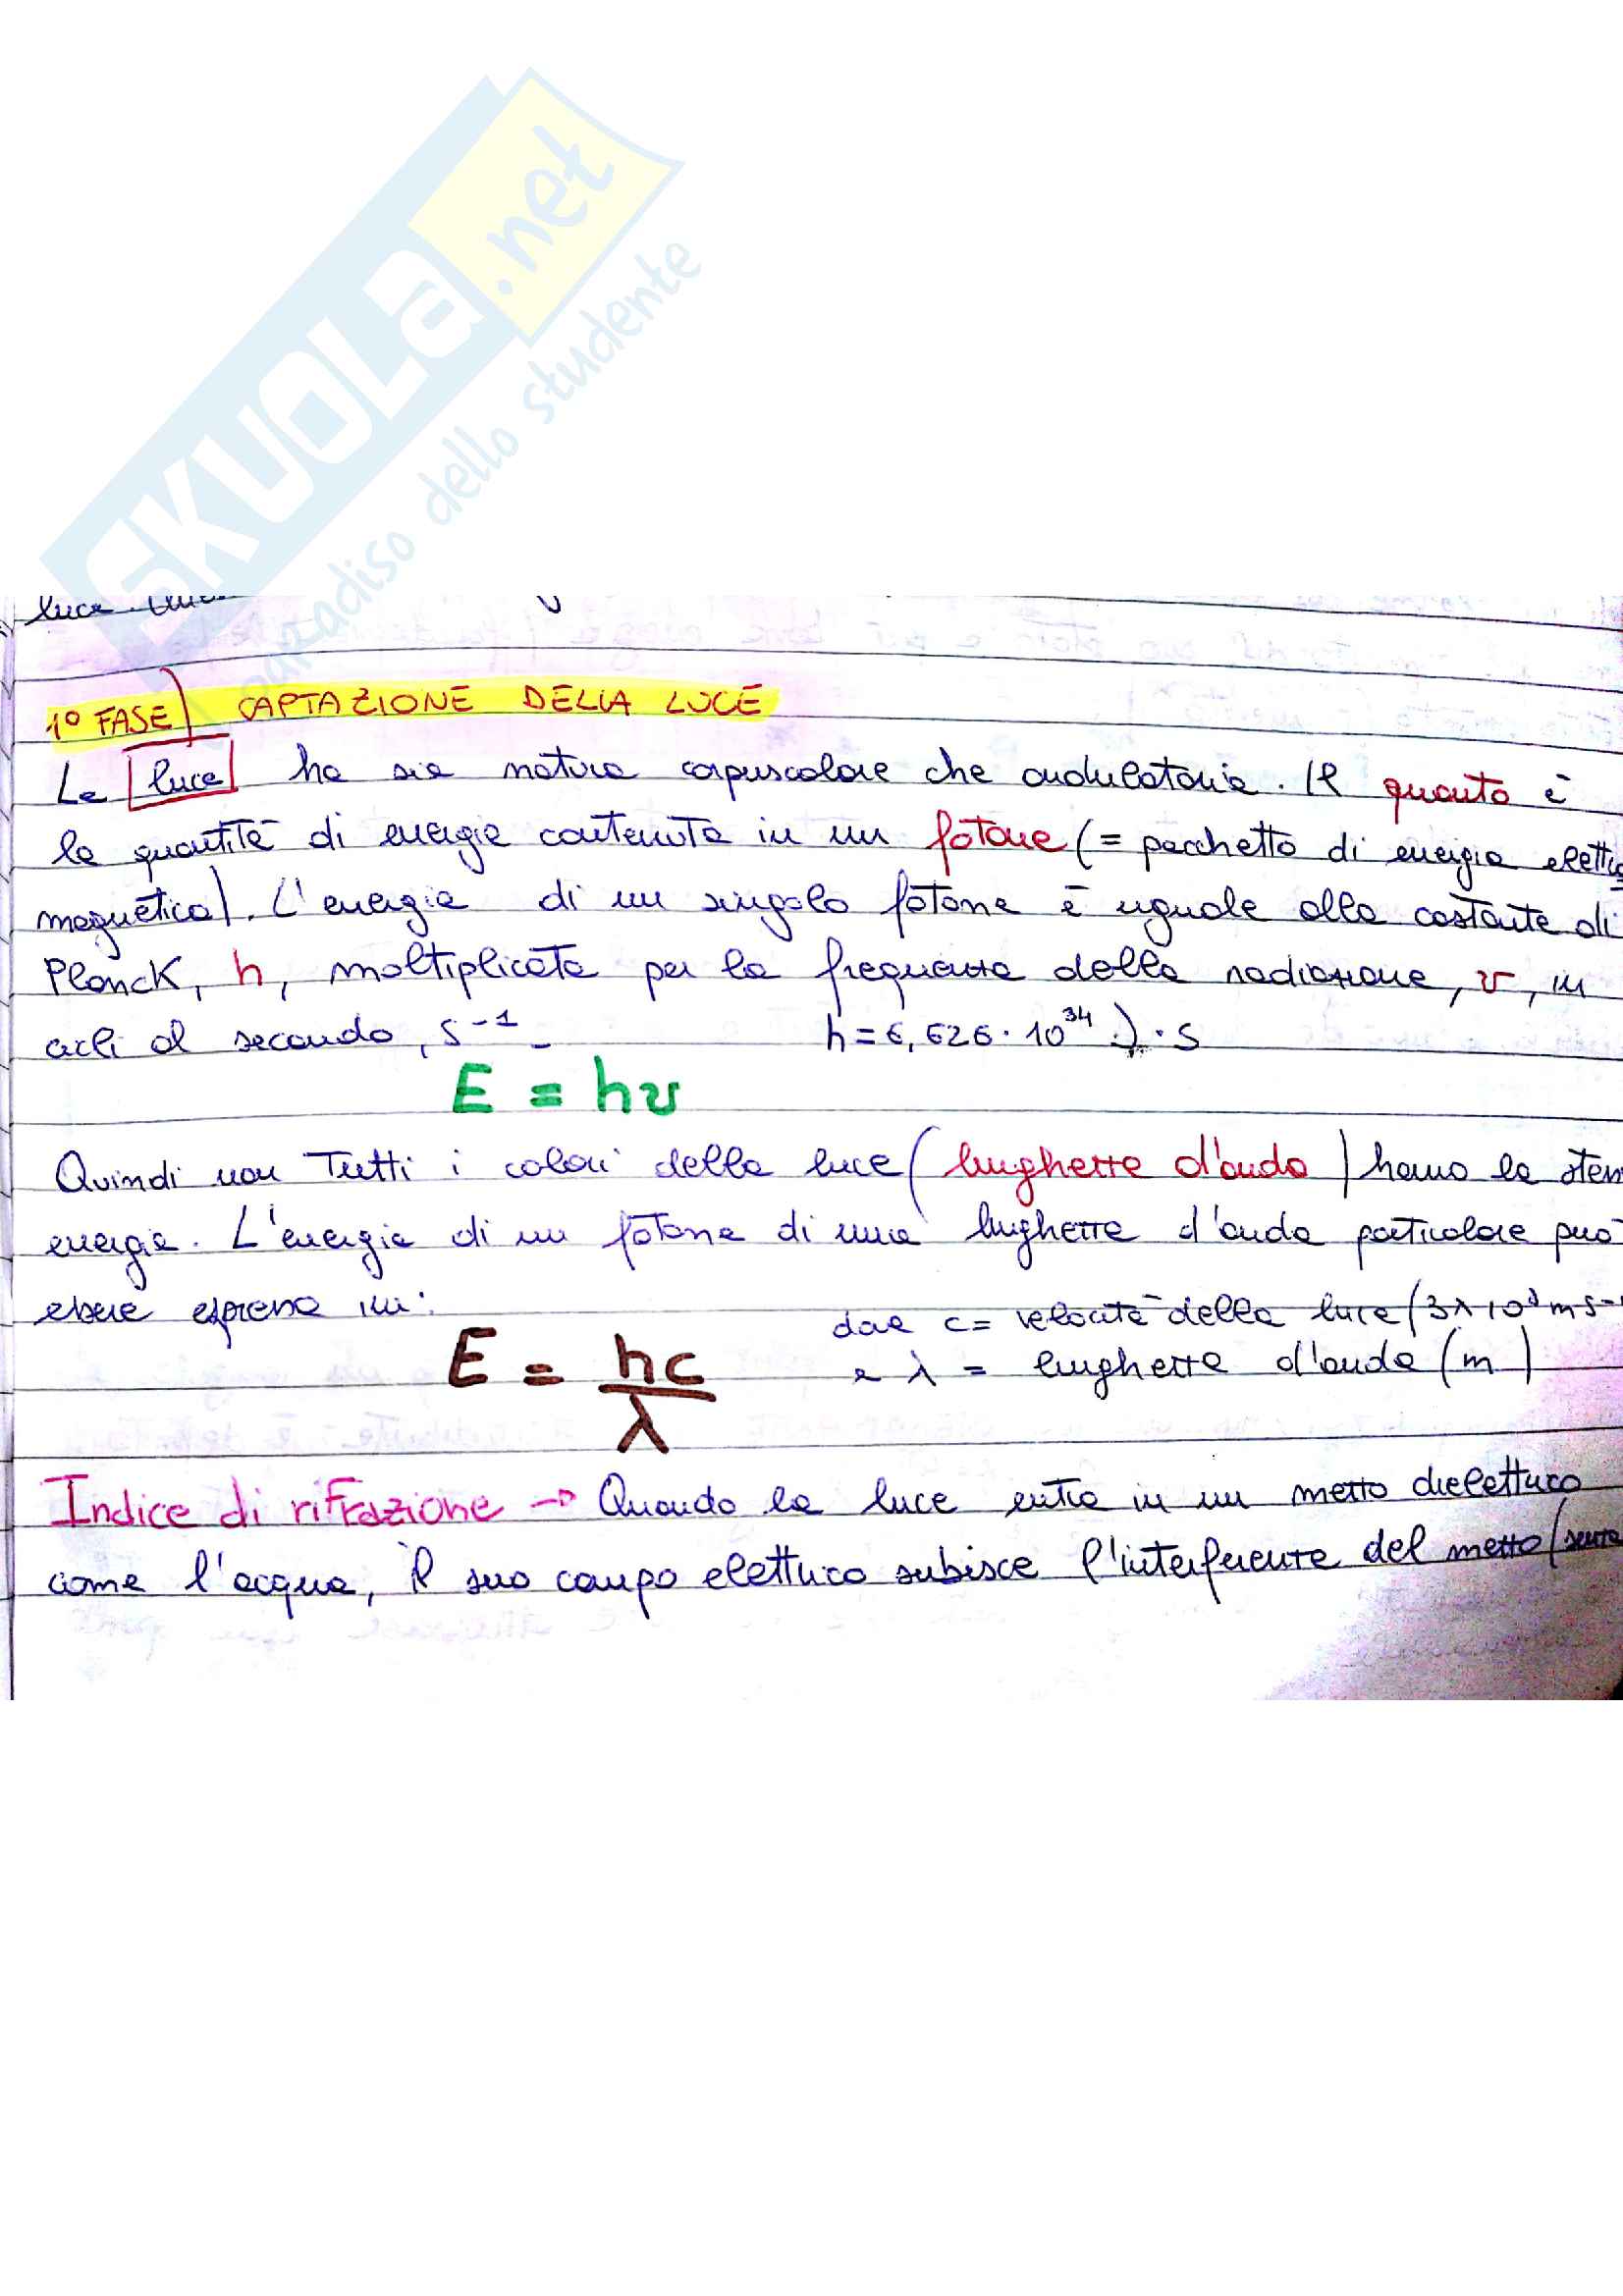 SKUOLA.net
paradiso dello studente
luce.
1° FASE) CAPTAZIONE DELLA LUCE
La luce ha sia natura corpuscolare che ondulatoria. Il quanto è
la quantità di energia contenuta in un fotone (= pacchetto di energia elettro
magnetica). L'energia di un singolo fotone è uguale alla costante di
Planck, h, moltiplicata per la frequenza della radiazione, ν, in
cicli al secondo, s⁻¹. h = 6,626·10³⁴ J·s
E = hν
Quindi non tutti i colori della luce (lunghezze d'onda) hanno la stess
energia. L'energia di un fotone di una lunghezza d'onda particolare può
essere espressa in:
dove c = velocità della luce (3×10⁸ m s⁻¹
E = hc/λ e λ = lunghezza d'onda (m)
Indice di rifrazione → Quando la luce entra in un mezzo dielettrico
come l'acqua, il suo campo elettrico subisce l'interferenza del mezzo (senza